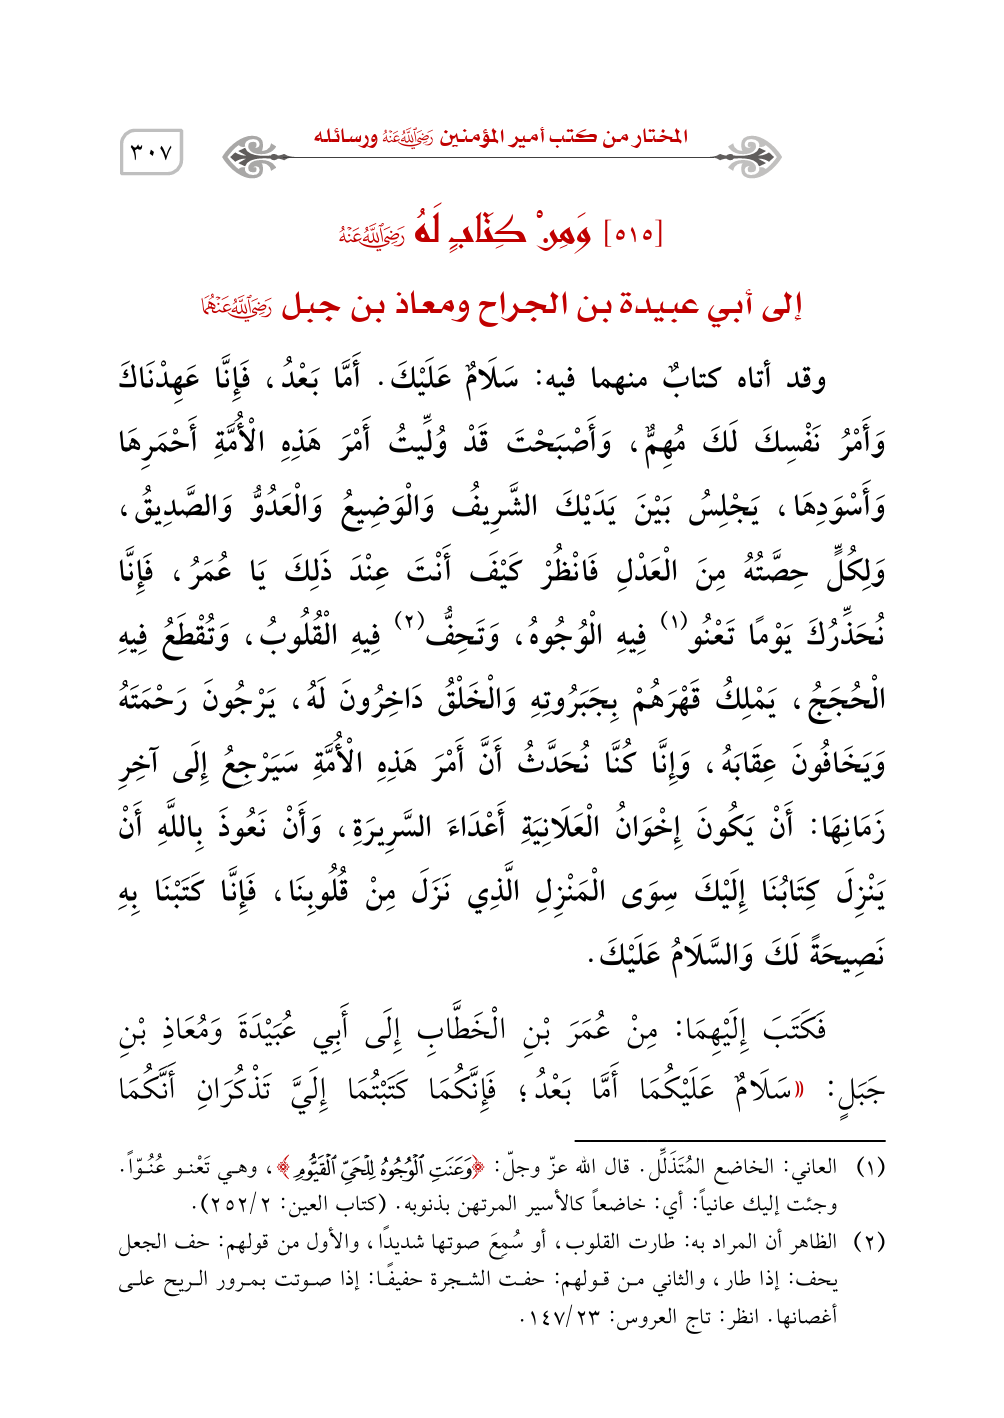 المختار من كتب أمير المؤمنين رَضِيَ اللَّهُ عَنْهُ ورسائله
٣٠٧
[٥١٥] وَمِنْ كِتَابٍ لَهُ رَضِيَ اللَّهُ عَنْهُ
إلى أبي عبيدة بن الجراح ومعاذ بن جبل رَضِيَ اللَّهُ عَنْهُمَا
وقد أتاه كتابٌ منهما فيه: سَلَامٌ عَلَيْكَ. أَمَّا بَعْدُ، فَإِنَّا عَهِدْنَاكَ
وَأَمْرُ نَفْسِكَ لَكَ مُهِمٌّ، وَأَصْبَحْتَ قَدْ وُلِّيتُ أَمْرَ هَذِهِ الْأُمَّةِ أَحْمَرِهَا
وَأَسْوَدِهَا، يَجْلِسُ بَيْنَ يَدَيْكَ الشَّرِيفُ وَالْوَضِيعُ وَالْعَدُوُّ وَالصَّدِيقُ،
وَلِكُلٍّ حِصَّتُهُ مِنَ الْعَدْلِ فَانْظُرْ كَيْفَ أَنْتَ عِنْدَ ذَلِكَ يَا عُمَرُ، فَإِنَّا
نُحَذِّرُكَ يَوْمًا تَعْنُو(١) فِيهِ الْوُجُوهُ، وَتَحِفُّ(٢) فِيهِ الْقُلُوبُ، وَتُقْطَعُ فِيهِ
الْحُجَجُ، يَمْلِكُ قَهْرَهُمْ بِجَبَرُوتِهِ وَالْخَلْقُ دَاخِرُونَ لَهُ، يَرْجُونَ رَحْمَتَهُ
وَيَخَافُونَ عِقَابَهُ، وَإِنَّا كُنَّا نُحَدَّثُ أَنَّ أَمْرَ هَذِهِ الْأُمَّةِ سَيَرْجِعُ إِلَى آخِرِ
زَمَانِهَا: أَنْ يَكُونَ إِخْوَانُ الْعَلَانِيَةِ أَعْدَاءَ السَّرِيرَةِ، وَأَنْ نَعُوذَ بِاللَّهِ أَنْ
يَنْزِلَ كِتَابُنَا إِلَيْكَ سِوَى الْمَنْزِلِ الَّذِي نَزَلَ مِنْ قُلُوبِنَا، فَإِنَّا كَتَبْنَا بِهِ
نَصِيحَةً لَكَ وَالسَّلَامُ عَلَيْكَ.
فَكَتَبَ إِلَيْهِمَا: مِنْ عُمَرَ بْنِ الْخَطَّابِ إِلَى أَبِي عُبَيْدَةَ وَمُعَاذِ بْنِ
جَبَلٍ: «سَلَامٌ عَلَيْكُمَا أَمَّا بَعْدُ؛ فَإِنَّكُمَا كَتَبْتُمَا إِلَيَّ تَذْكُرَانِ أَنَّكُمَا
(١) العاني: الخاضع المُتَذَلِّل. قال الله عزّ وجلّ: ﴿وَعَنَتِ ٱلْوُجُوهُ لِلْحَيِّ ٱلْقَيُّومِ﴾، وهي تَعْنو عُنُوّاً.
وجئت إليك عانياً: أي: خاضعاً كالأسير المرتهن بذنوبه. (كتاب العين: ٢/ ٢٥٢).
(٢) الظاهر أن المراد به: طارت القلوب، أو سُمِعَ صوتها شديدًا، والأول من قولهم: حف الجعل
يحف: إذا طار، والثاني من قولهم: حفت الشجرة حفيفًا: إذا صوتت بمرور الريح على
أغصانها. انظر: تاج العروس: ٢٣/ ١٤٧.